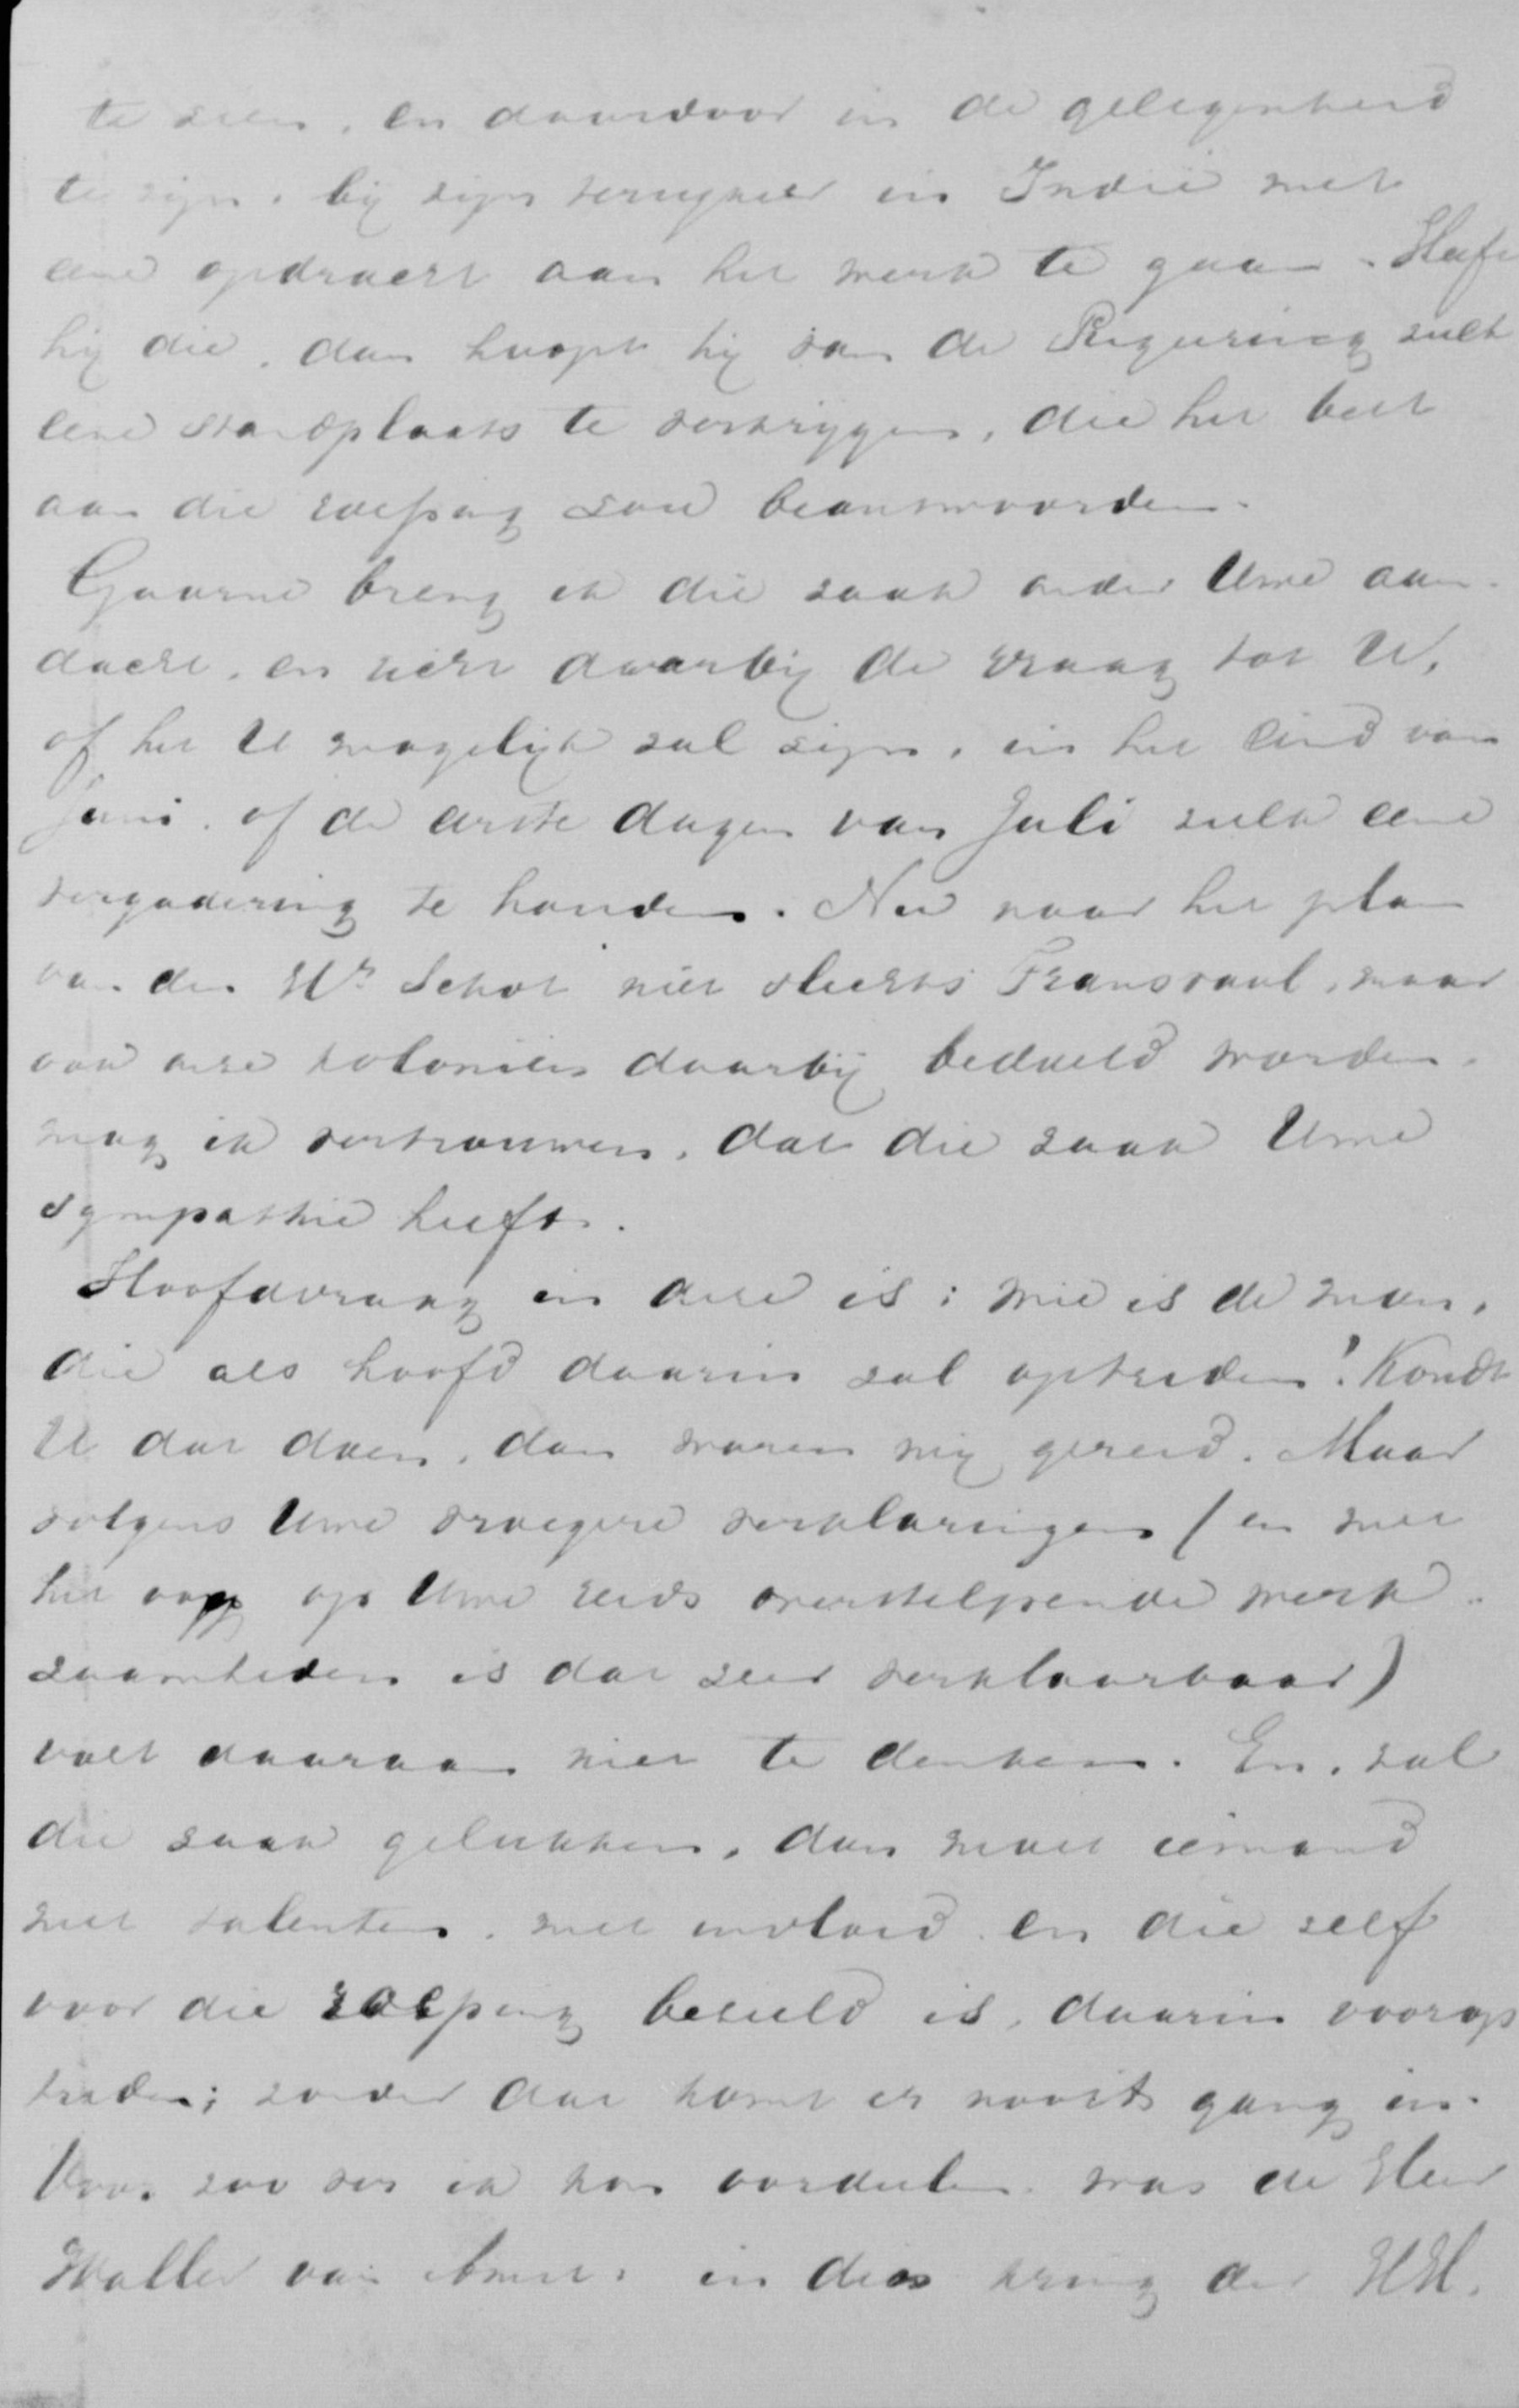 te zien, en daardoor in de gelegenheid
te zijn, bij zijn terugkeer in Indië met
eene opdracht aan het werk te gaan. Heeft
hij die, dan hoopt hij van de Regeering zulk
eene standplaats te verkrijgen, die het best
aan die roeping zou beantwoorden.
Gaarne breng ik die zaak onder Uwe aan-
dacht, en richt daarbij de vraag tot U,
of het U mogelijk zal zijn, in het eind van
Juni, of de eerste dagen van Juli zulk eene
vergadering te houden. Nu naar het plan
van den Hr Schot niet slechts Transvaal, maar
ook onze koloniën daarbij bedoeld worden,
mag ik vertrouwen, dat die zaak Uwe
sympathie heeft.
Hoofdvraag in deze is: wie is de man,
die als hoofd daarin zal optreden? Kondt
U dat doen, dan waren wij gereed. Maar
volgens Uwe vroegere verklaringen (en met
het oog op Uwe reeds overstelpende werk-
zaamheden is dat zeer verklaarbaar)
valt daaraan niet te denken. En, zal
die zaak gelukken, dan moet iemand
met talenten, met invloed en die zelf
voor die roeping bezield is, daarin voorop
treden; zonder dat komt er nooit gang in.
Voor zoo ver ik kon oordeelen, was de Heer
Waller van Amst. in dien kring der HH.